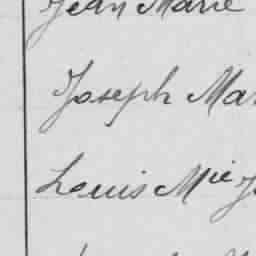 Jean Marie
Joseph Mar
Louis Mie J